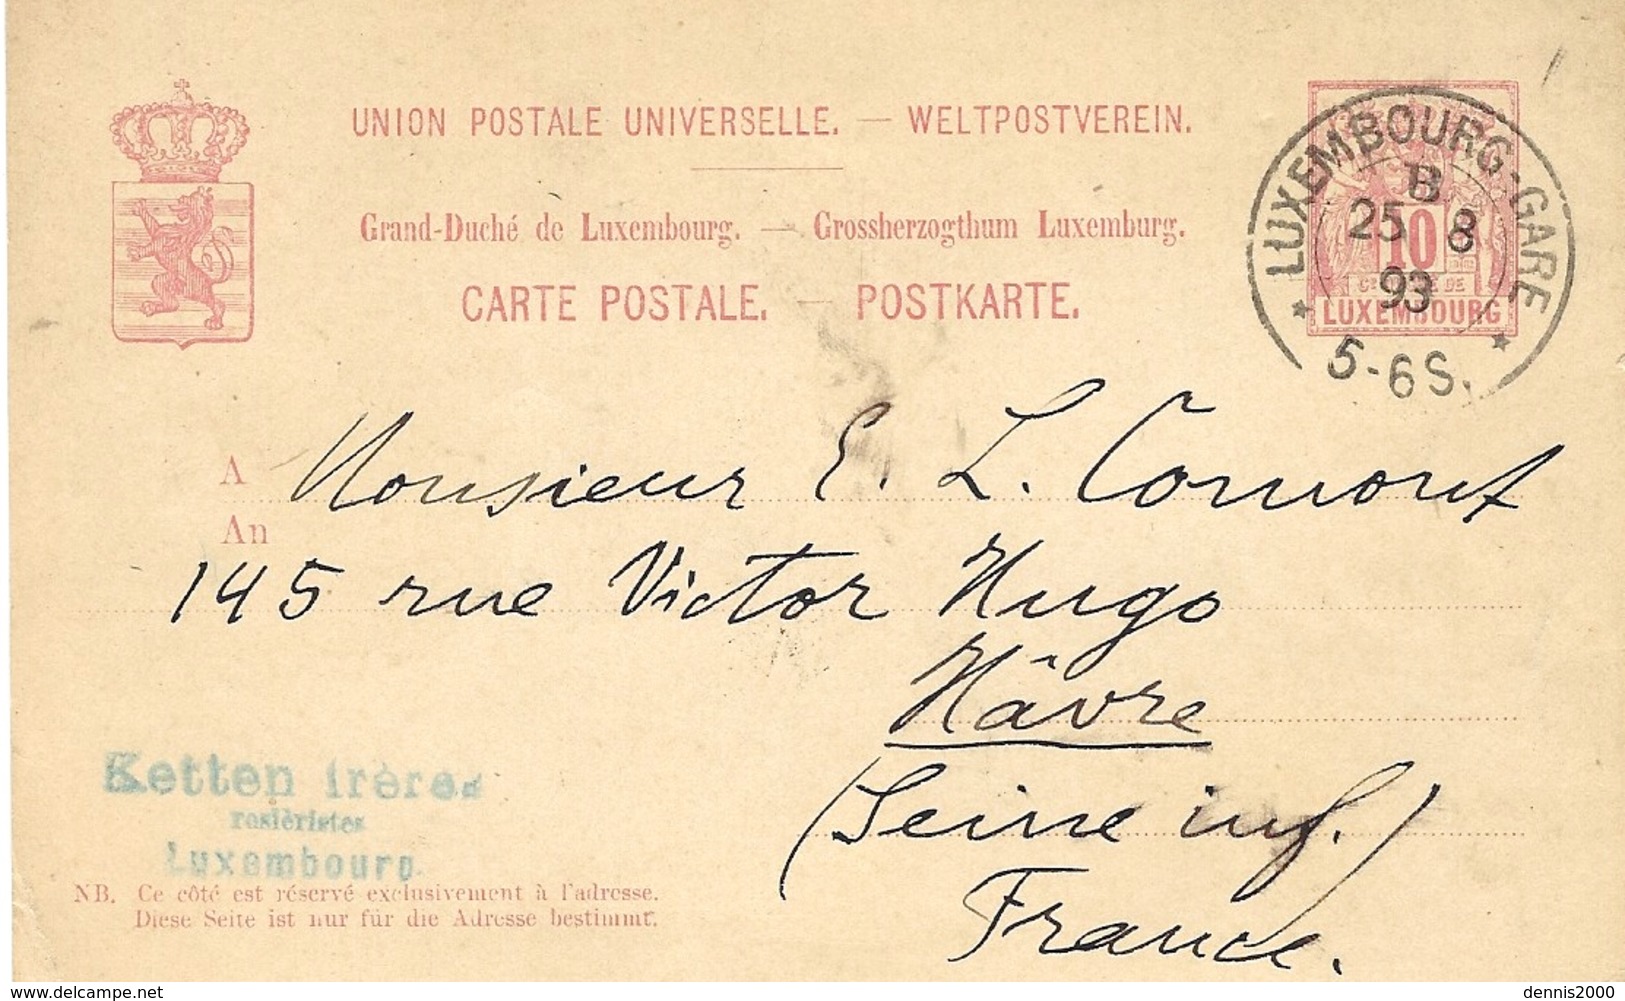 UNION POSTALE UNIVERSELLE. — WELTPOSTVEREIN.
Grand-Duché de Luxembourg. — Grossherzogthum Luxemburg.
CARTE POSTALE. — POSTKARTE.
LUXEMBOURG-GARE
B
25 8
93
5-6S.
10
LUXEMBOURG
A Monsieur E. L. Comont
An
145 rue Victor Hugo
Hâvre
(Seine inf.)
France.
Ketten frères
rosièristes
Luxembourg.
NB. Ce côté est réservé exclusivement à l'adresse.
Diese Seite ist nur für die Adresse bestimmt.
delcampe.net
dennis2000